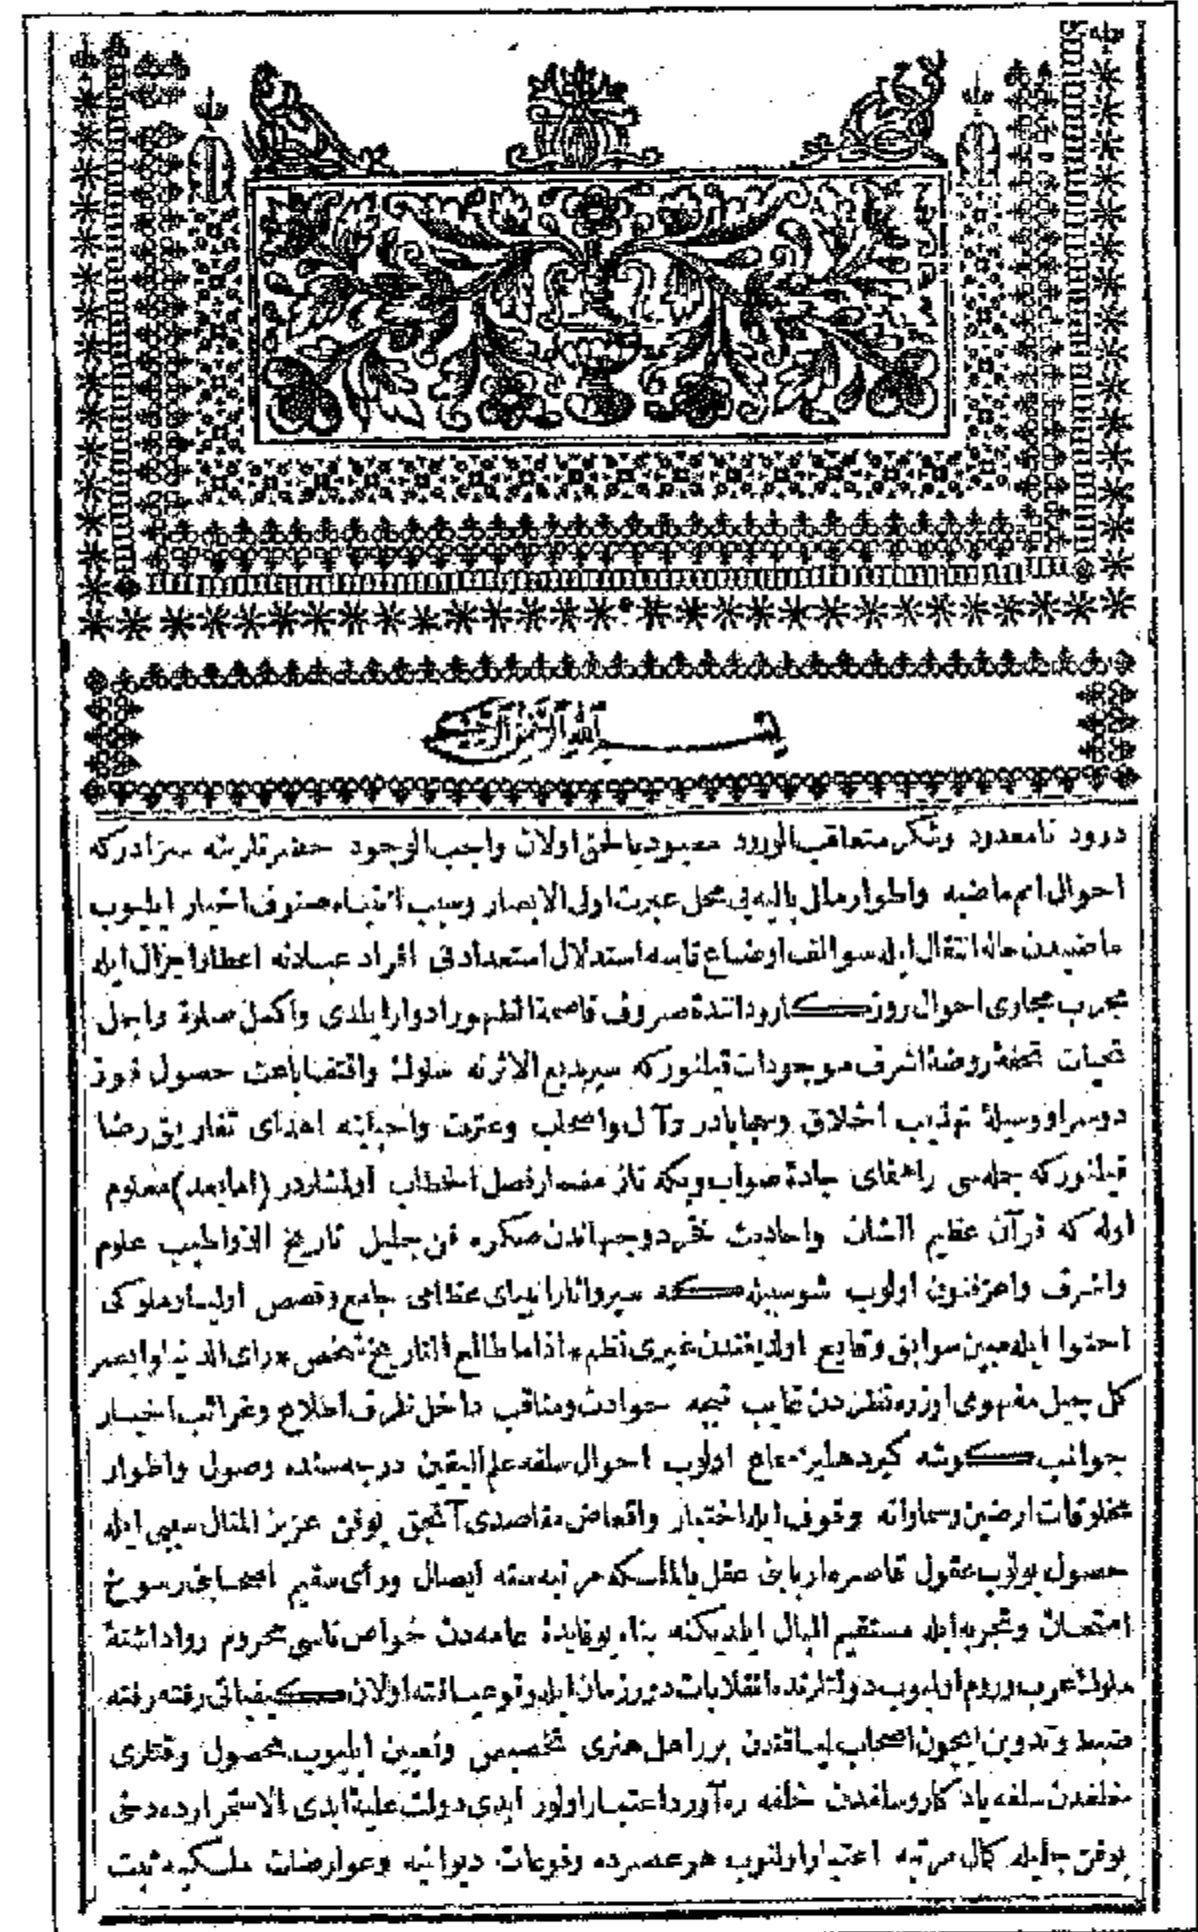 بسم الله الرحمن الرحيم
درود نامعدود وشكر متعاقب الورود معبود بالحق اولان واجب الوجود حضرتلرينه سزادركه
احوال امم ماضيه واطوار ملل باليه يى محل عبرت اولى الابصار وسبب انتباه صنوف اخيار ايليوب
ماضيدن حاله انتقال ايله سوالف اوضاع ناسه استدلال استعدادنى افراد عبادنه اعطا واجزال ايله
مجرب مجارى احوال روزكار وداننده صروف قاصمة الظهور ادوار ايلدى واكمل صلوة واجمل
تحيات تحفه روضه اشرف موجودات قيلنوركه سير بديع الاثرنه سلوك واقتفا باعث حصول فوز
دوسرا ووسيله تهذيب اخلاق وسجايادر وآل واصحاب وعترت واحبابنه اهداى تفاريق رضا
قيلنوركه جمله سى راهنماى جاده صواب ويكه تاز مضمار فصل الخطاب اولمشلردر (اما بعد) معلوم
اوله كه قرآن عظيم الشان واحاديث دوجهاندن صكره فن جليل تاريخ الذ واطيب علوم
واشرف واعز فنون اولوب شوسببله كه سير وآثار انبياى عظامى جامع وقصص اوليا وملوكى
احتوا ايله مبين سوابق وقايع اولديغندن غيرى نظم * اذا ما طالع التاريخ شخص * راى الدنيا وابصر
كل جيل مفهومى اوزره نظردن غايب نيجه حوادث ومناقب داخل نظر ف اطلاع وغرائب اخبار
جوانب كوشه كير دهليز سماع اولوب احوال سلفه علم اليقين درجه سنده وصول واطوار
مخلوقات ارضين وسماواته وقوف ايله اختبار واتعاض مقاصدى آنجق بوفن عزيز المنال سببى ايله
حصول بولوب عقول قاصره اربابنى عقل بالملكه مرتبه سنه ايصال ورأى سقيم اصحابنى رسوخ
امتحان وتجربه ايله مستقيم البال ايلديكنه بناء بوفايده عامه دن خواص ناسى محروم روا داشته
ملوك عرب وروم اولميوب دولتلرنده انقلابات دور زمان ايله وقوعيافته اولان كيفياتى رفته رفته
ضبط وتدوين ايچون اصحاب لياقتدن برر اهل هنرى تخصيص وتعيين ايليوب محصول وقتلرى
خلفدن سلفه يادكار وسلفدن خلفه ره آورد اعتبار اولور ايدى دولت عليه ابدى الاستقرارده دخى
بوفن جليله كمال مرتبه اعتبار اولنوب هر عصرده وقوعات ديوانيه وعوارضات ملكيه ثبت